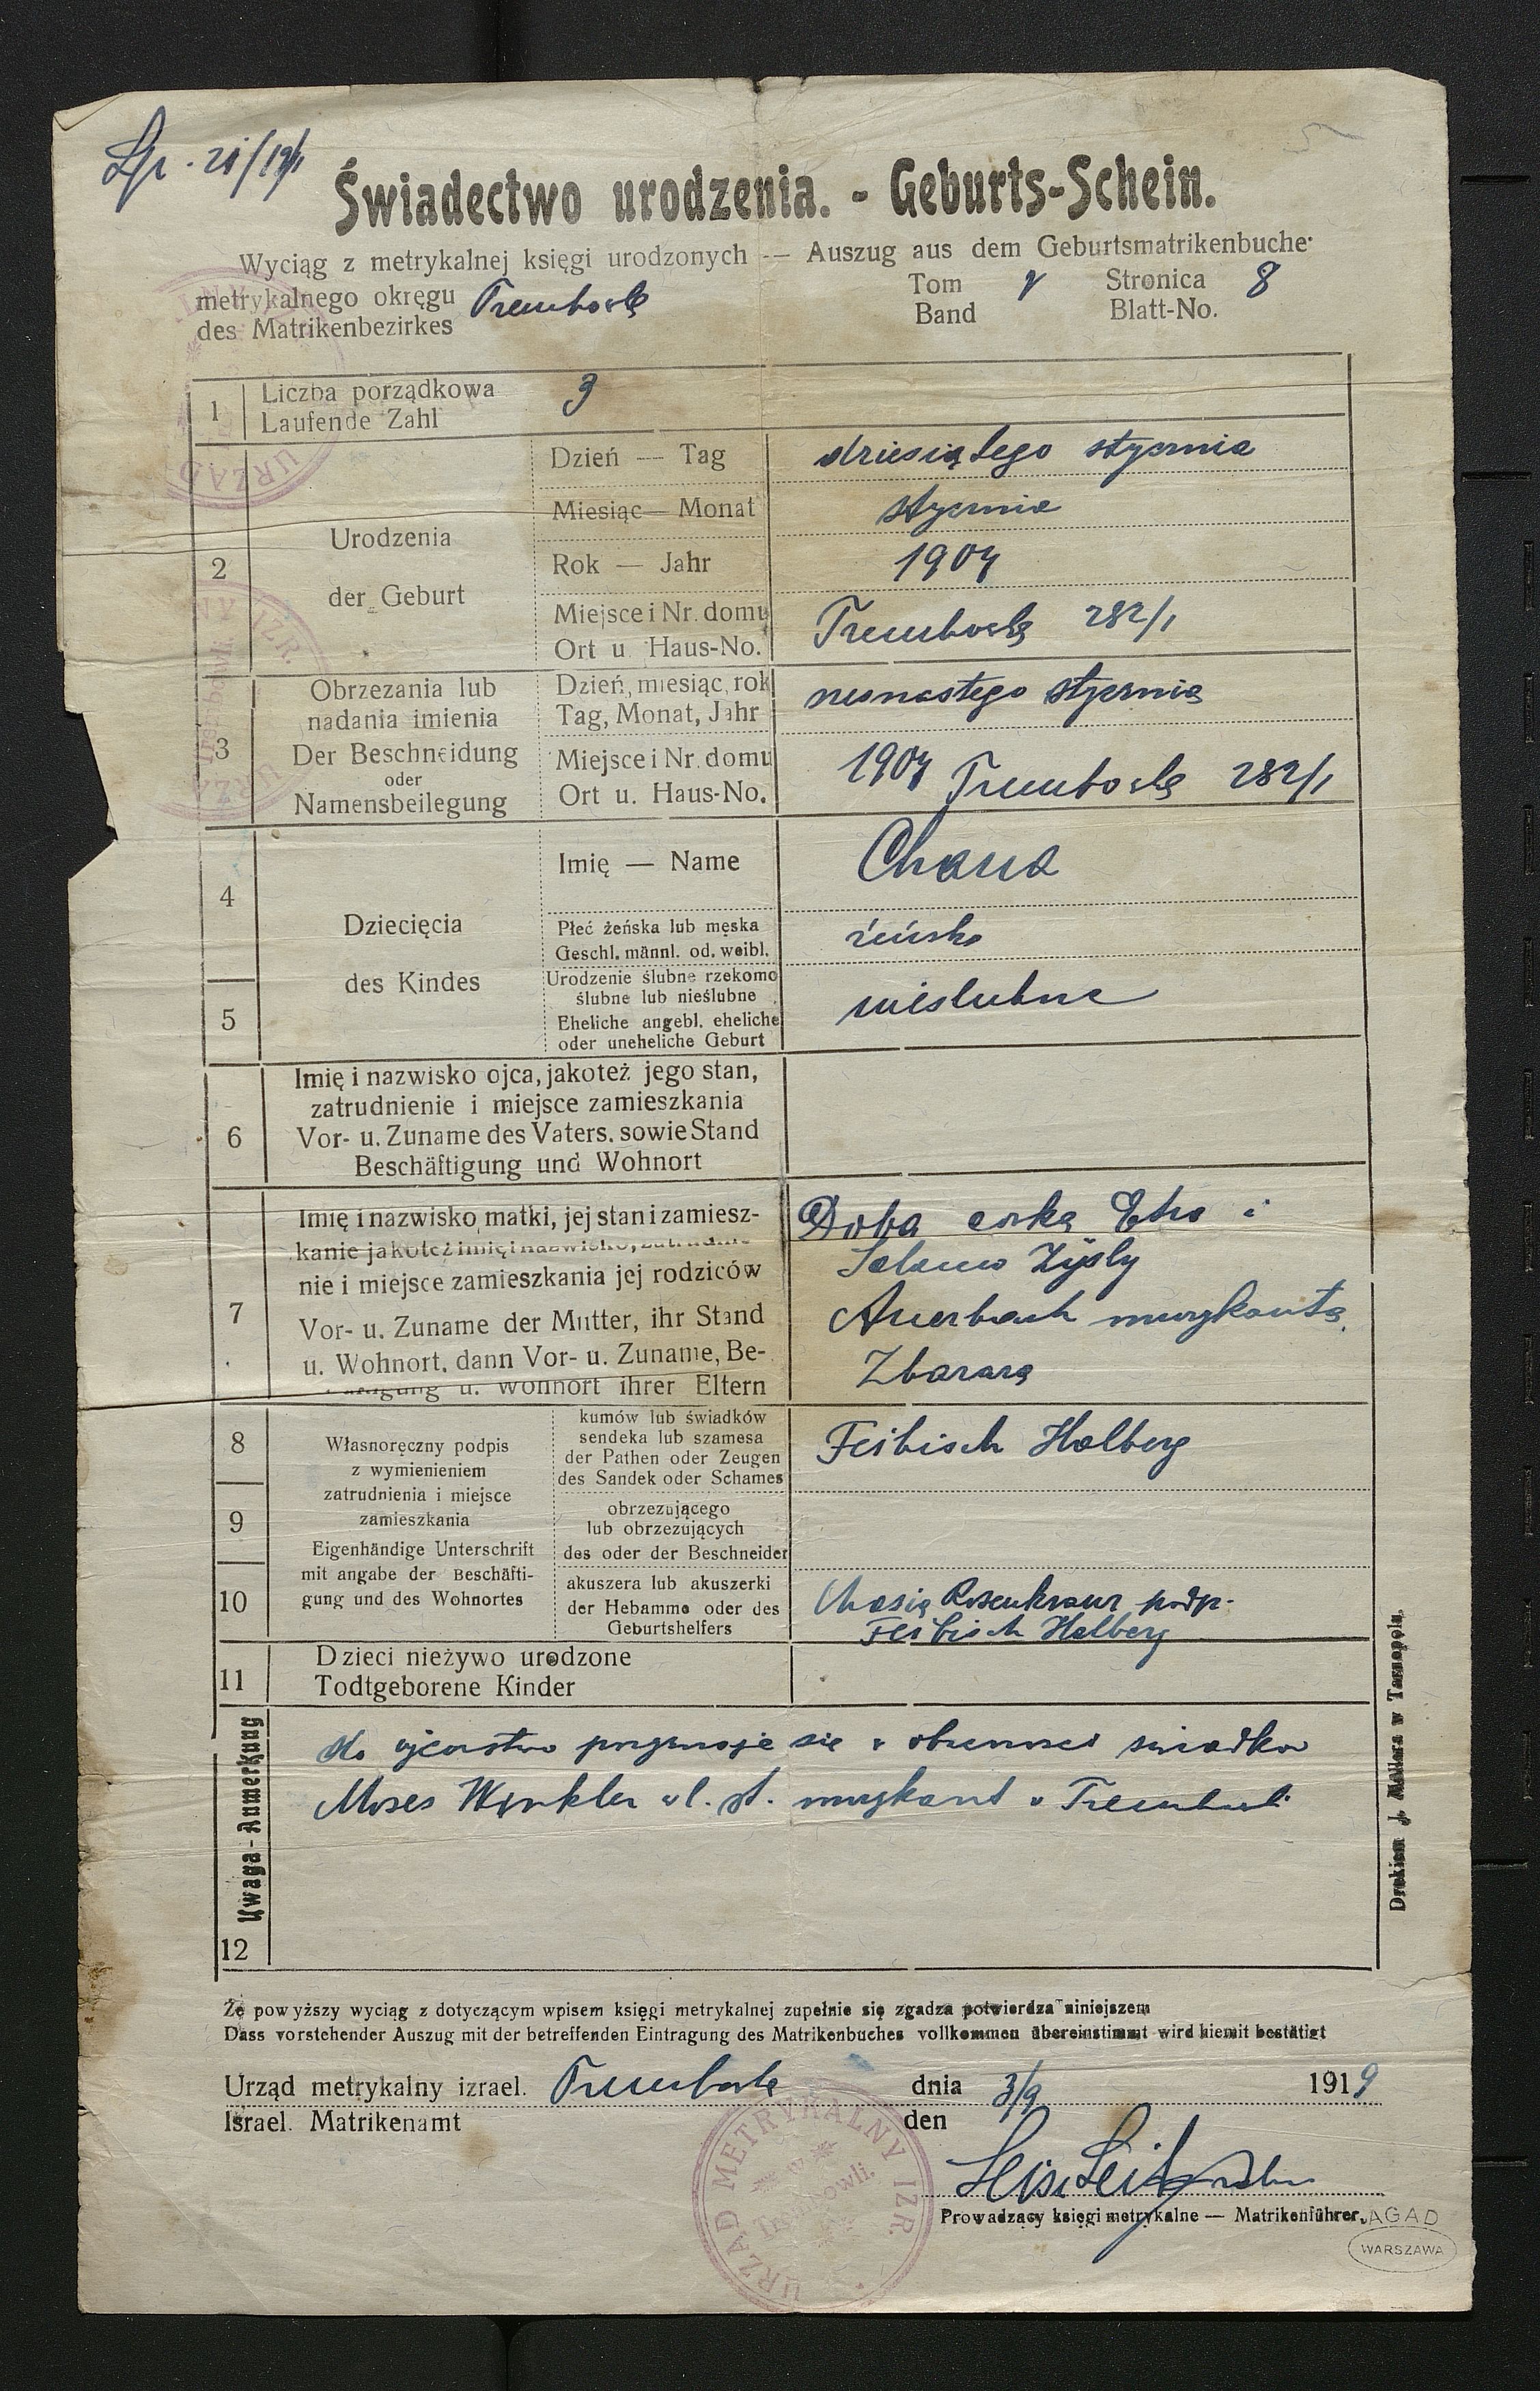 Lp. 21/191
Świadectwo urodzenia. - Geburts-Schein.
Wyciąg z metrykalnej księgi urodzonych — Auszug aus dem Geburtsmatrikenbuche
metrykalnego okręgu Trembowla
des Matrikenbezirkes
Tom V Stronica 8
Band Blatt-No.
1 Liczba porządkowa 3
Laufende Zahl
2 Urodzenia
der Geburt
Dzień — Tag dziesiątego stycznia
Miesiąc — Monat stycznia
Rok — Jahr 1904
Miejsce i Nr. domu Trembowla 282/1
Ort u. Haus-No.
3 Obrzezania lub
nadania imienia
Der Beschneidung
oder
Namensbeilegung
Dzień, miesiąc, rok stycznia
Tag, Monat, Jahr
Miejsce i Nr. domu 1904 Trembowla 282/1
Ort u. Haus-No.
4 Dziecięcia
des Kindes
Imię — Name Chana
Płeć żeńska lub męska żeńska
Geschl. männl. od. weibl.
5 Urodzenie ślubne rzekomo nieślubne
ślubne lub nieślubne
Eheliche angebl. eheliche
oder uneheliche Geburt
6 Imię i nazwisko ojca, jakoteż jego stan,
zatrudnienie i miejsce zamieszkania
Vor- u. Zuname des Vaters, sowie Stand
Beschäftigung und Wohnort
7 Imię i nazwisko matki, jej stan i zamiesz-
kanie jakoteż imię i nazwisko, zatrudnie-
nie i miejsce zamieszkania jej rodziców
Vor- u. Zuname der Mutter, ihr Stand
u. Wohnort, dann Vor- u. Zuname, Be-
u. Wohnort ihrer Eltern
Doba córka i
Zysly
Auerbach muzykanta
Zbaraża
8 Własnoręczny podpis
z wymienieniem
zatrudnienia i miejsce
zamieszkania
Eigenhändige Unterschrift
mit angabe der Beschäfti-
gung und des Wohnortes
kumów lub świadków Feibisch Halberg
sendeka lub szamesa
der Pathen oder Zeugen
des Sandek oder Schames
9 obrzezującego
lub obrzezujących
des oder der Beschneider
10 akuszera lub akuszerki Chasia Rosenkranz podp.
der Hebamme oder des Feibisch Halberg
Geburtshelfers
11 Dzieci nieżywo urodzone
Todtgeborene Kinder
12 Uwaga - Anmerkung
do ojcostwa przyznaje się w obecności świadków
Moses Winkler muzykant w Trembowli
Drukiem J. Mellera w Tarnopolu.
Że powyższy wyciąg z dotyczącym wpisem księgi metrykalnej zupełnie się zgadza potwierdza niniejszem
Dass vorstehender Auszug mit der betreffenden Eintragung des Matrikenbuches vollkommen übereinstimmt wird hiemit bestätigt
Urząd metrykalny izrael. Trembowla dnia 3/9 1919
Israel. Matrikenamt den
Prowadzący księgi metrykalne — Matrikenführer.
URZĄD METRYKALNY IZR.
w Trembowli.
AGAD
WARSZAWA